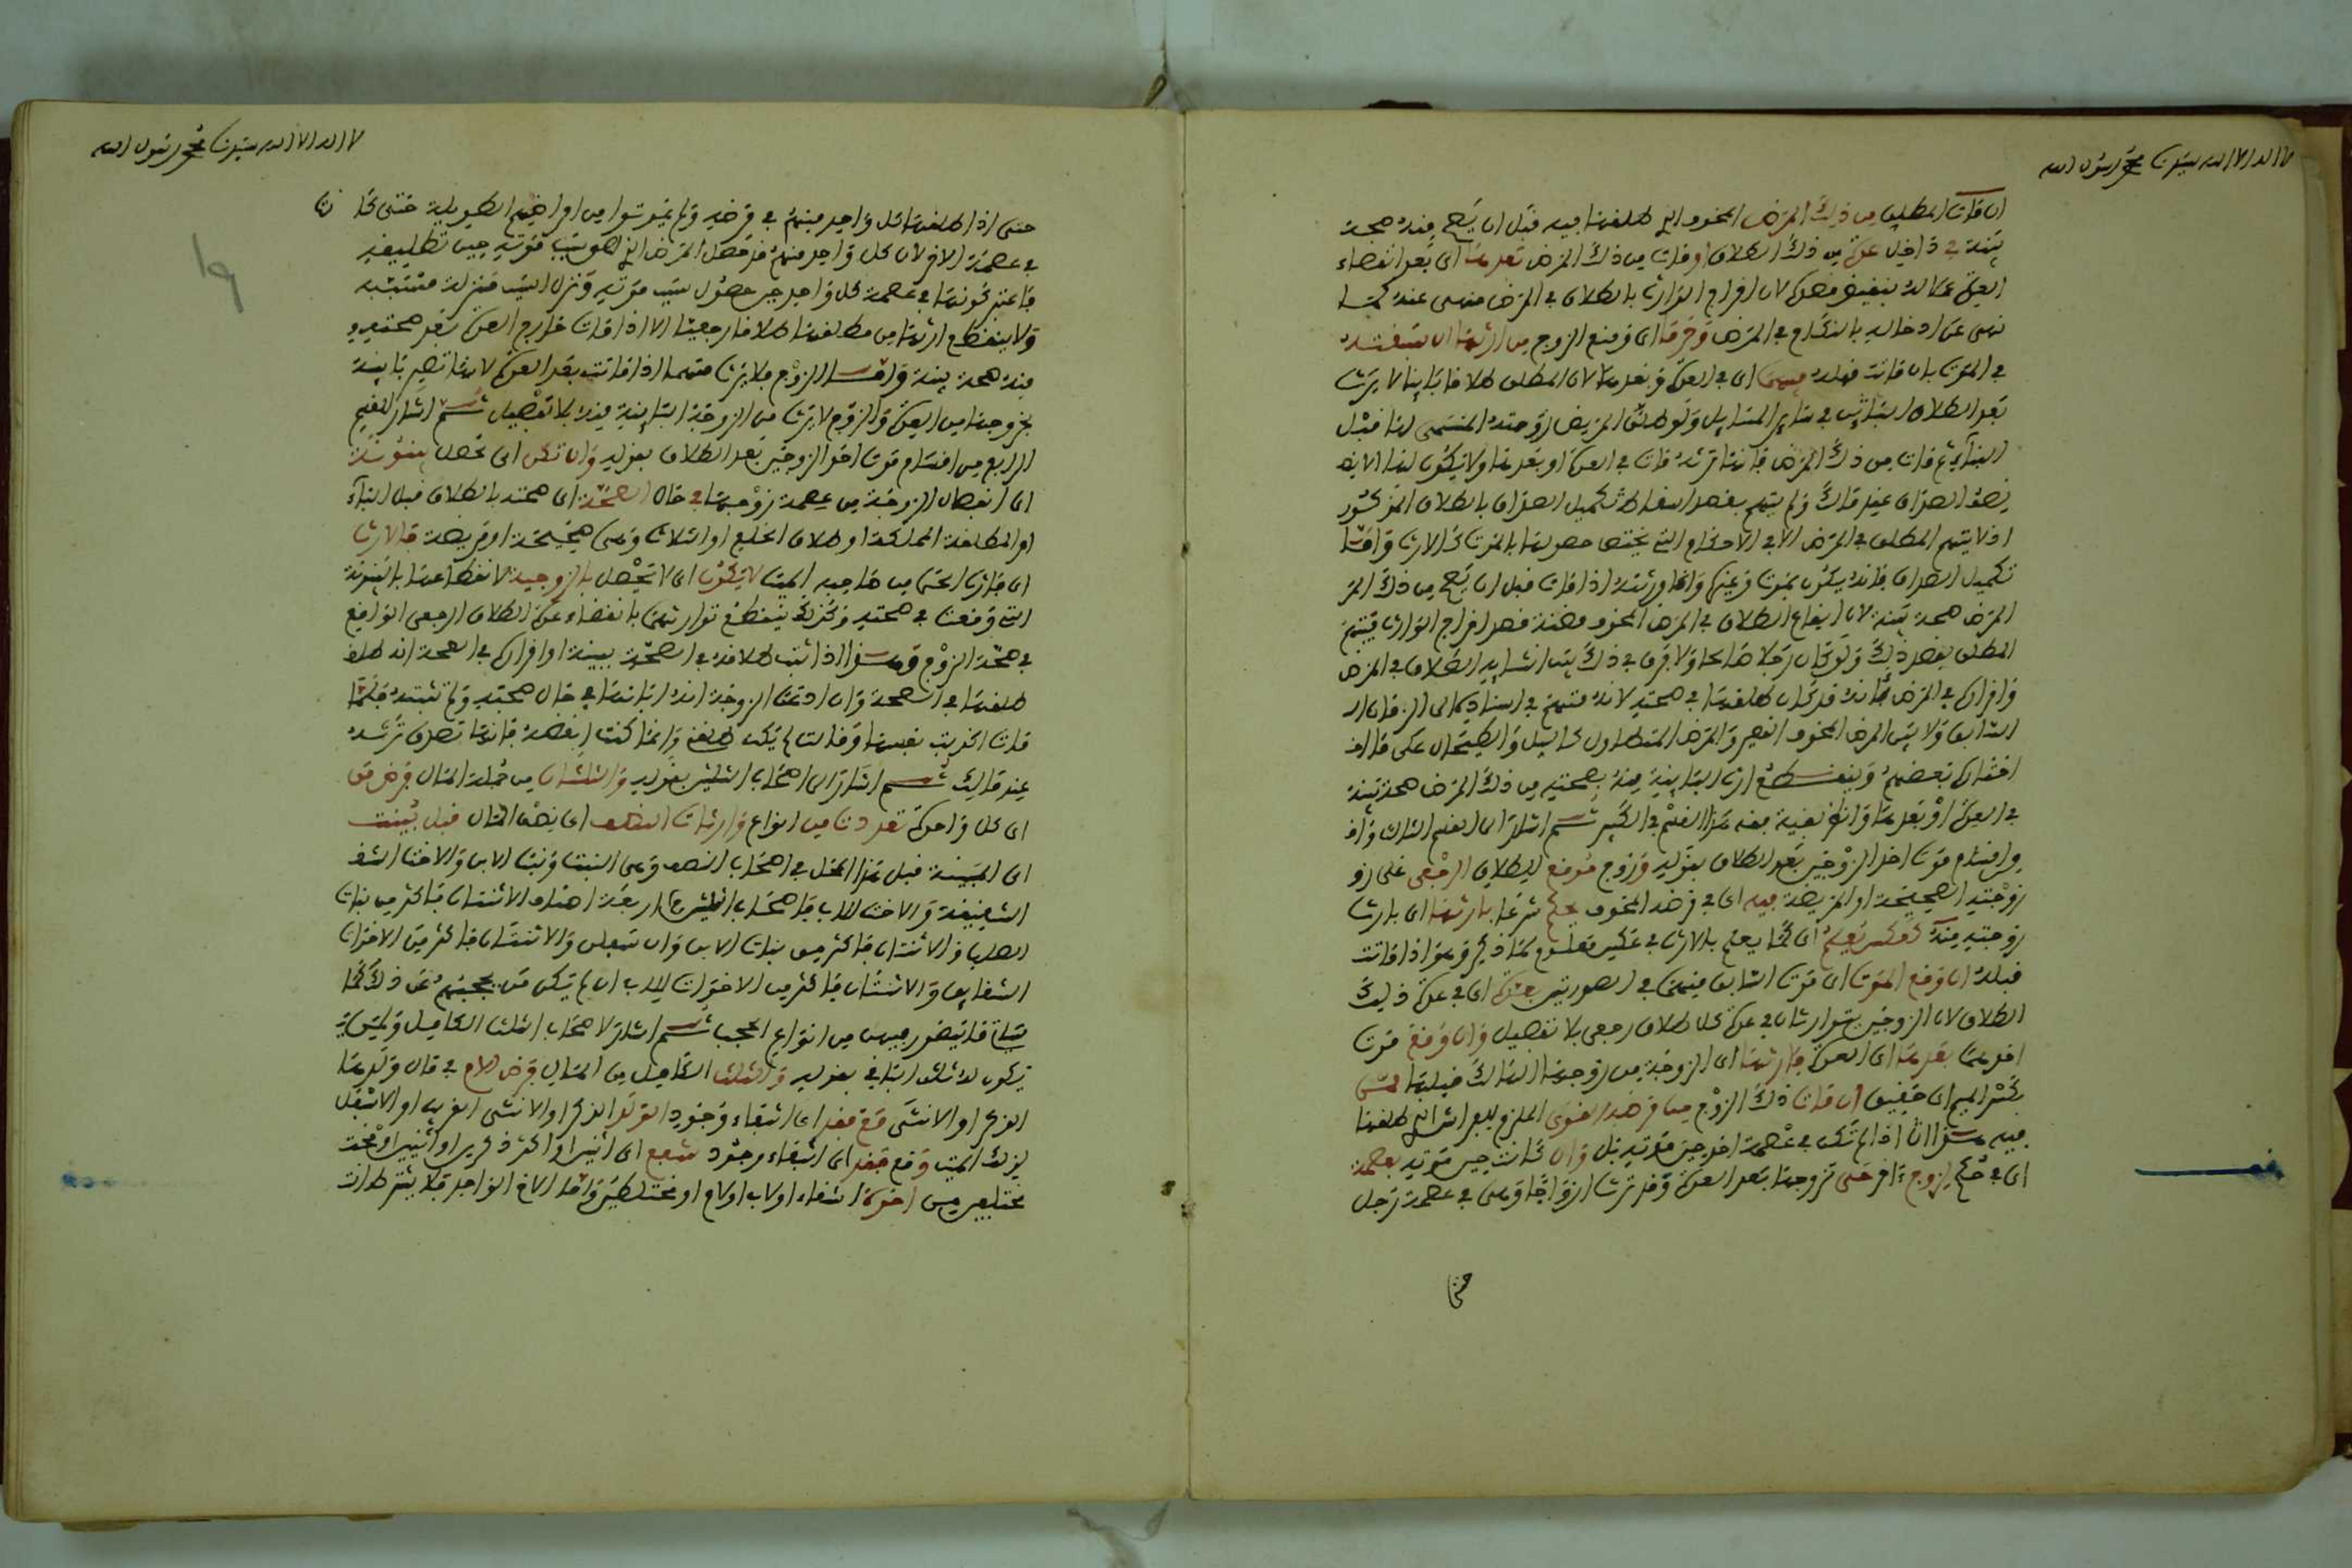 لا اله الا الله سيدنا محمد رسول الله
ان مات المطلق من ذلك المرض المخوف الذي طلقها فيه قبل ان يصح منه صحة
بينة في داخل عدة من ذلك الطلاق او مات من ذلك المرض بعدها اى بعد انقضاء
العدة معاملة له بنقيض قصده لان اخراج الوارث بالطلاق في المرض منهى عنه كما
نهى عن ادخاله بالنكاح في المرض وحرما اى ومنع الزوج من ارثها ان سبقته
في الموت بان ماتت قبله فيهما اى في العدة وبعدها لان المطلق طلاقا باينا لا يرث
بعد الطلاق الباين في ساير المسايل ولو طلق المريض زوجته المسمى لها قبل
البناء ثم مات من ذلك المرض فانها ترثه مات في العدة او بعدها ولا يكون لها الا
نصف الصداق عند مالك ولم يتهم بقصد اسقاط تكميل الصداق بالطلاق المذكور
اذ لا يتهم المطلق في المرض الا في الاحكام التي يختص حصولها بالموت كالارث واما
تكميل الصداق فانه يكون بموت وغيره وانما ورثته اذا مات قبل ان يصح من ذلك المر
المرض صحة بينة لان ايقاع الطلاق في المرض المخوف مظنة قصد اخراج الوارث فيتهم
المطلق بقصد ذلك ولو كان رجلا صالحا ولا فرق في ذلك بين انشايه الطلاق في المرض
واقراره في المرض بانه قد كان طلقها في صحته لانه متهم في اسناده الى الزمان ال
السابق ولا بين المرض المخوف القصير والمرض المتطاول كالسل والطحال على ما اخ
اختاره بعضهم وينقطع ارث الباينة منه بصحته من ذلك المرض صحة بينة
في العدة او بعدها وانظر بقية فقه هذا القسم في الكبير ثم اشار الى القسم الثالث واخ
من اقسام موت احد الزوجين بعد الطلاق بقوله وزوج موقع للطلاق الرجعى على زو
زوجته الصحيحة او المريضة فيه اى في مرضه المخوف يحكم شرعا بارثها اى بارث
زوجته منه كعكس يعلم اى كما يعلم بالارث في عكس معلوم كما ذكر وهو اذا ماتت
قبله ان وقع الموت اى موت السابق منهما في الصورتين بعدة اى في عدة ذلك
الطلاق لان الزوجين يتوارثان في عدة كل طلاق رجعى بلا تفصيل وان وقع موت
احدهما بعدها اى العدة فارثها اى الزوجة من زوجها الهالك قبلها قمن
بكسر الميم اى حقيق ان مات ذلك الزوج من مرضه القوى الملزم للفراش الذي طلقها
فيه هذا ان اذا لم تكن في عصمة اخر حين موته بل وان كانت حين موته بعصمة
اى في حكم لزوج ءاخر حتى تزوجها بعد العدة وقد ترث ازواجا وهى في عصمة رجل
حتى
لا اله الا الله سيدنا محمد رسول الله
حتى اذا طلقها كل واحد منهم في مرضه ولم يموتوا من امراضهم الطويلة حتى كا نت
في عصمة الاخر لان كل واحد منهم قد حصل المرض الذي هو سبب موته حين تطليقه
فاعتبر كونها في عصمة كل واحد حين حصول سبب موته ونزل السبب منزلة مسببه
ولا ينقطع ارثها من مطلقها طلاقا رجعيا الا اذا مات خارج العدة بعد صحته
منه صحة بينة واما الزوج فلا يرث منها اذا ماتت بعد العدة لانها تصير باينة
بخروجها من العدة والزوج لا يرث من الزوجة الباينة منه بلا تفصيل ثم اشار للقسم
الرابع من اقسام موت احد الزوجين بعد الطلاق بقوله وان تكن اى تحصل بينونة
اى انفصال الزوجة من عصمة زوجها في حال الصحة اى صحته بالطلاق قبل البناء
او المطلقة المملكة او طلاق الخلع او الثلاث وهى صحيحة او مريضة فالارث
اى فارث الحى من صاحبه الميت لا يكون اى لا يحصل بالزوجية لانقطاعها بالبينونة
التى وقعت في صحته وكذلك ينقطع توارثهما بانقضاء عدة الطلاق الرجعى الواقع
في صحة الزوج وهذا اذا ثبت طلاقه في الصحة ببينة او اقراره في الصحة انه طلق
طلقها في الصحة وان ادعت الزوجة انه ابانها في حال صحته ولم تثبته فلما
مات اكذبت نفسها وقالت لم يكن طلقني وانما كنت ابغضه فانها تصدق ترثه
عند مالك ثم اشار الى اصحاب الثلثين بقوله والثلثان من جملة المال فرض من
اى كل واحدة تعددت من انواع وارثات النصف اى نصف المال قبل بينت
اى المبينة قبل هذا المحل في اصحاب النصف وهى البنت وبنت الابن والاخت الشق
الشقيقة والاخت للاب فاصحاب الثلثين اربعة اصناف الاثنتان فاكثر من بنات
الصلب والاثنتان فاكثر من بنات الابن وان سفلن والاثنتان فاكثر من الاخوات
الشقايق والاثنتان فاكثر من الاخوات للاب ان لم يكن من يحجبهم عن ذلك كما
سياتى فيهن من انواع الحجب ثم اشار لاصحاب الثلث الكامل وليس
يكون له ثلث الباقي بقوله والثلث الكامل من المال فرض الام في مال ولدها
الذكر او الانثى مع فقد اى انتفاء وجود الولد الذكر او الانثى القريب او الاسفل
لذلك الميت ومع فقد اى انتفاء وجود شفع اى اثنين او اكثر ذكرين او انثيين او مخت
مختلفين من اخوة اشقاء او لاب او لام او مختلطين واما الاخ الواحد فلا يشترط ان